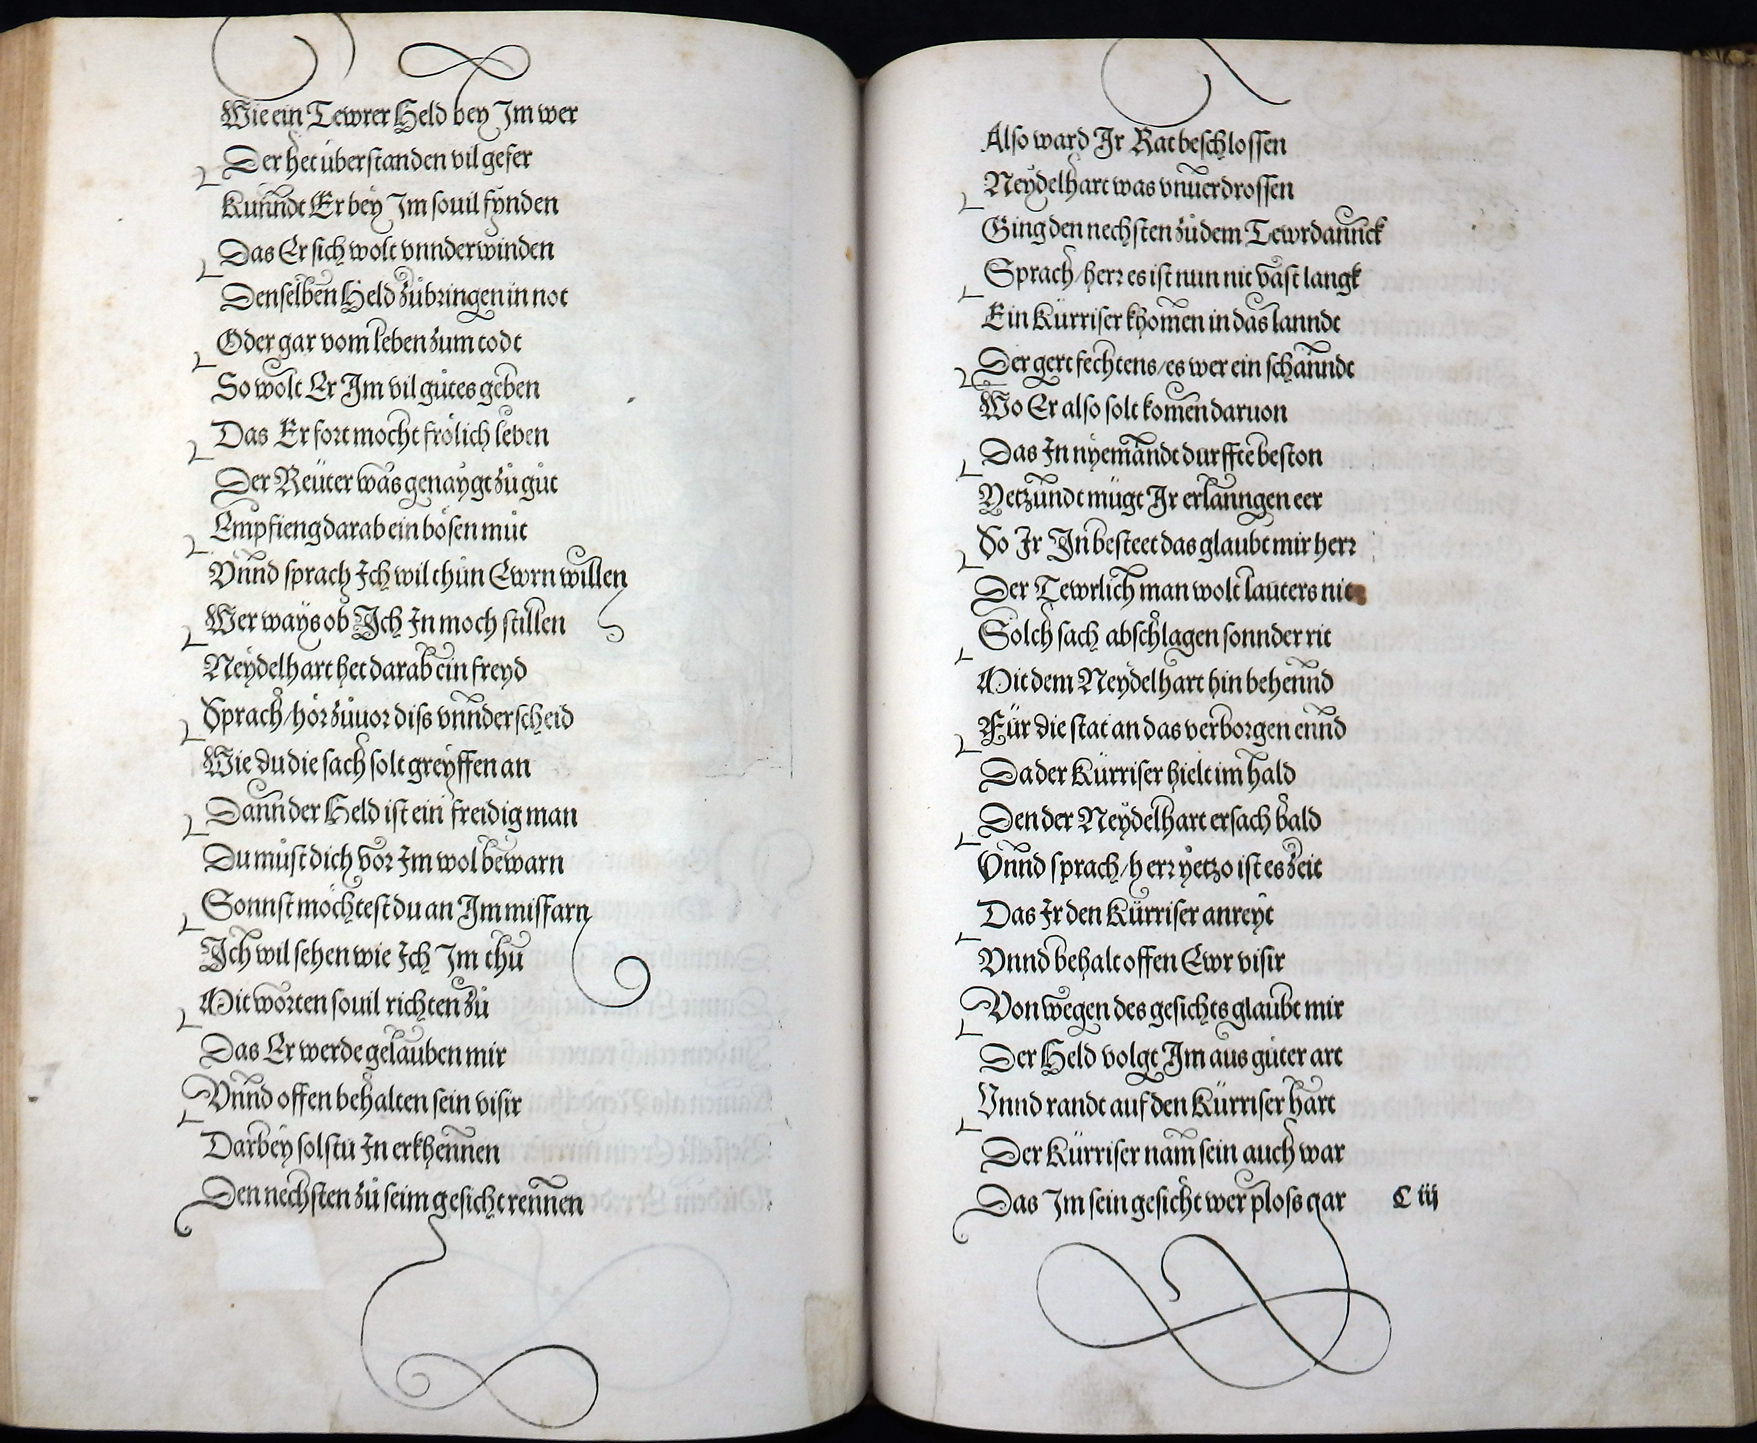 Wie ein Tewrer Held bey Im wer
Der het überstanden vil gefer
Kunndt Er bey Im souil fynden
Das Er sich wolt vnnderwinden
Denselben Held zůbringen in not
Oder gar vom leben zum todt
So wolt Er Im vil gůtes geben
Das Er fort mocht frölich leben
Der Reüter was genaygt zů gůt
Empfieng darab ein bösen můt
Vnnd sprach Ich wil thůn Ewrn willen
Wer ways ob Ich In moch stillen
Neydelhart het darab ein freyd
Sprach / hör zůuor diss vnnderscheid
Wie du die sach solt greyffen an
Dann der Held ist ein freidig man
Du můst dich vor Im wol bewarn
Sonnst möchtest du an Im missfarn
Ich wil sehen wie Ich Im thů
Mit worten souil richten zů
Das Er werde gelauben mir
Vnnd offen behalten sein visir
Darbey solstu In erkhennen
Den nechsten zů seim gesicht rennen
Also ward Ir Rat beschlossen
Neydelhart was vnuerdrossen
Ging den nechsten zů dem Tewrdannck
Sprach / herr es ist nun nit vast langk
Ein Kürriser khomen in das lanndt
Der gert fechtens / es wer ein schanndt
Wo Er also solt komen daruon
Das In nyemandt durffte beston
Yetzundt mügt Ir erlanngen eer
So Ir In besteet das glaubt mir herr
Der Tewrlich man wolt lauters nit
Solch sach abschlagen sonnder rit
Mit dem Neydelhart hin behennd
Für die stat an das verborgen ennd
Da der Kürriser hielt im hald
Den der Neydelhart ersach bald
Vnnd sprach / herr yetzo ist es zeit
Das Ir den Kürriser anreyt
Vnnd behalt offen Ewr visir
Von wegen des gesichts glaubt mir
Der Held volgt Im aus gůter art
Vnnd randt auf den Kürriser hart
Der Kürriser nam sein auch war
Das Im sein gesicht wer ploss gar
C iij